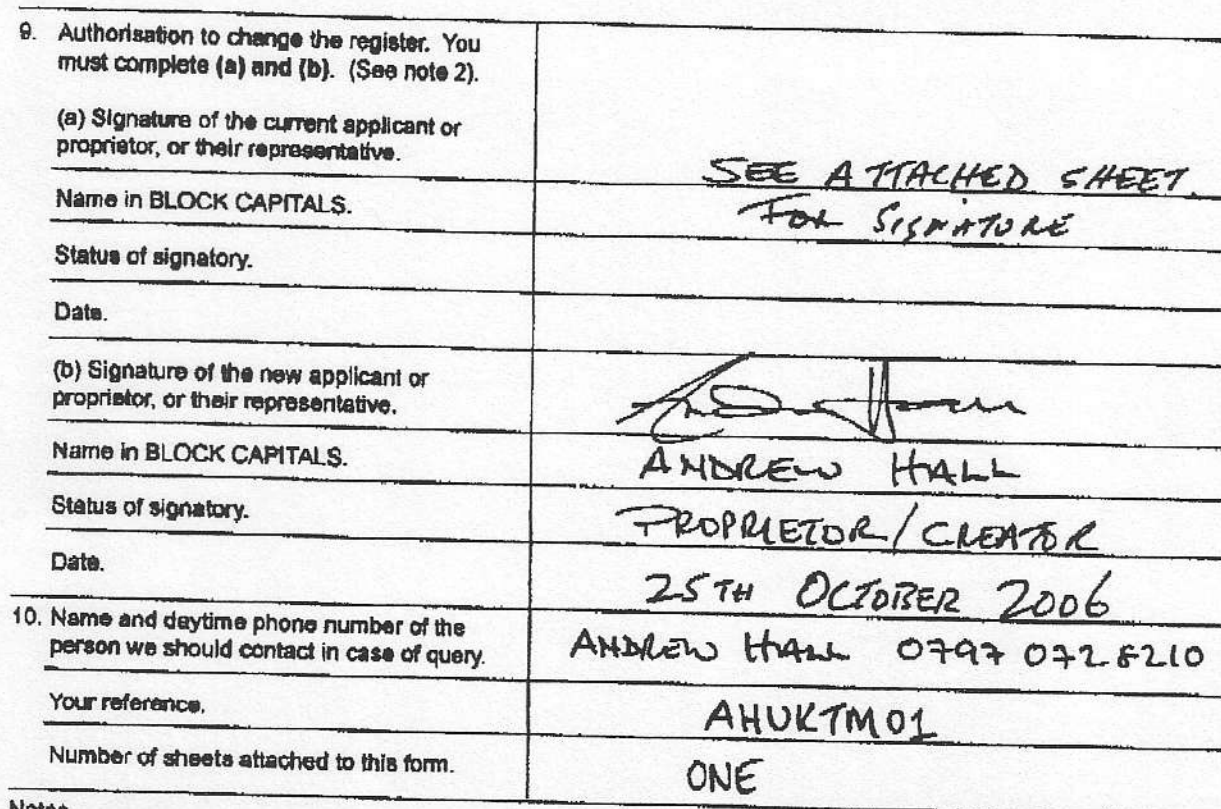 9. Authorisation to change the register. You
must complete (a) and (b). (See note 2).
(a) Signature of the current applicant or
proprietor, or their representative.
SEE ATTACHED SHEET
Name in BLOCK CAPITALS.
FOR SIGNATURE
Status of signatory.
Date.
(b) Signature of the new applicant or
proprietor, or their representative.
Name in BLOCK CAPITALS.
ANDREW HALL
Status of signatory.
PROPRIETOR/CREATOR
Date.
25TH OCTOBER 2006
10. Name and daytime phone number of the
person we should contact in case of query.
ANDREW HALL 0797 0728210
Your reference.
AHUKTM01
Number of sheets attached to this form.
ONE
Notes